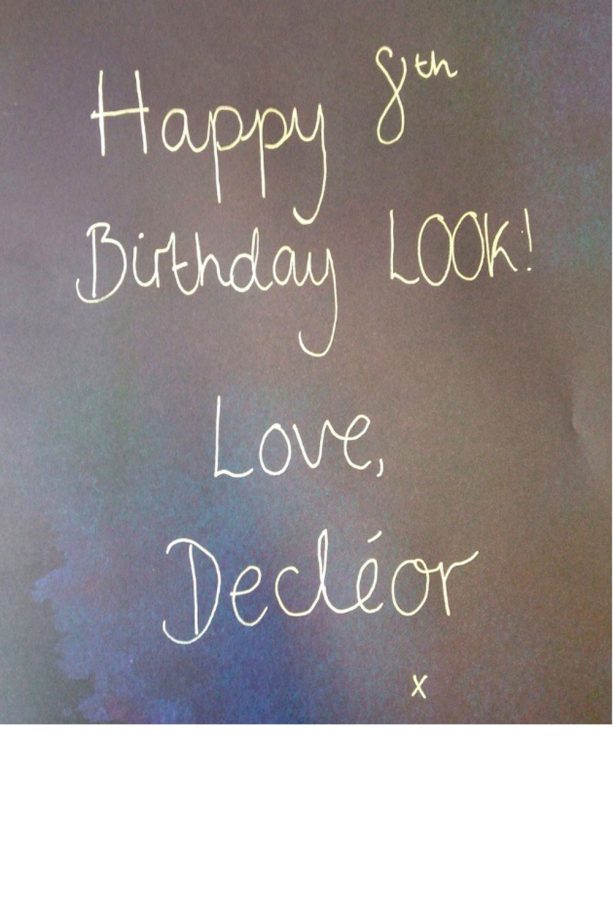 Happy 8th
Birthday LOOK!
Love,
Decléor
x